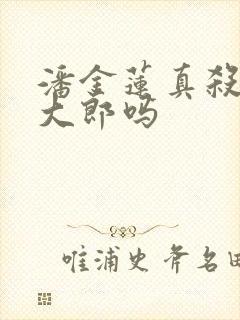 潘金莲真殺
大郎吗
唯浦史斧名田